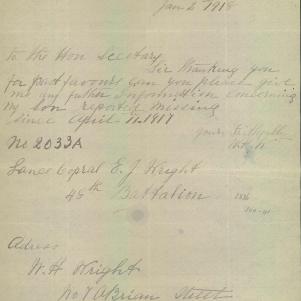 Jan 6 1918
To the Hon Secetary
Sir thanking you
for past favours can you please give
me any futher Information concerning
my son reported missing
since April 11. 1917
yours
No 2033A
Lance Copral E. J Wright
48th Battalion
Adress
W. H Wright
No 1 O'Brien Street